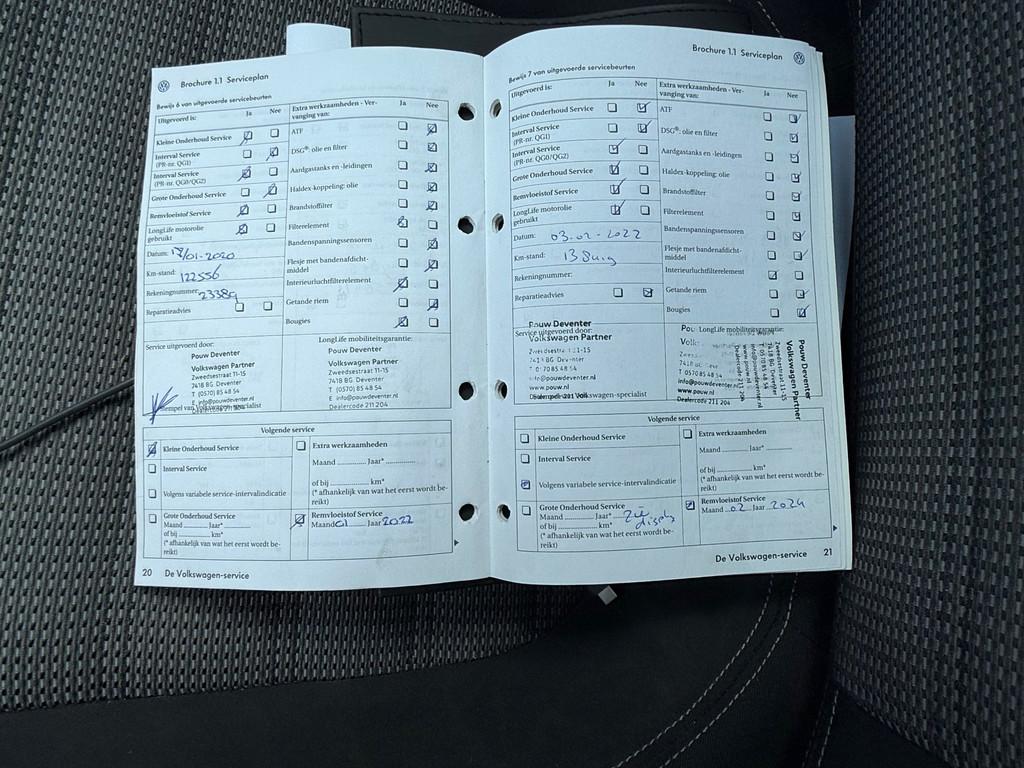 Brochure 1.1 Serviceplan
Bewijs 6 van uitgevoerde servicebeurten
Uitgevoerd is: Ja Nee
Kleine Onderhoud Service
Interval Service
(PR-nr. QG1)
Interval Service
(PR-nr. QG0/QG2)
Grote Onderhoud Service
Remvloeistof Service
LongLife motorolie
gebruikt
Datum: 17/01-2020
Km-stand: 122556
Rekeningnummer: 23389
Reparatieadvies
Extra werkzaamheden - Ver-
vanging van: Ja Nee
ATF
DSG®: olie en filter
Aardgastanks en -leidingen
Haldex-koppeling: olie
Brandstoffilter
Filterelement
Bandenspanningssensoren
Flesje met bandenafdicht-
middel
Interieurluchtfilterelement
Getande riem
Bougies
Service uitgevoerd door:
Pouw Deventer
Volkswagen Partner
Zweedsestraat 11-15
7418 BG Deventer
T (0570) 85 48 54
E info@pouwdeventer.nl
Dealercode 211 204
Stempel van Volkswagen-specialist
LongLife mobiliteitsgarantie:
Pouw Deventer
Volkswagen Partner
Zweedsestraat 11-15
7418 BG Deventer
T (0570) 85 48 54
E info@pouwdeventer.nl
Dealercode 211 204
Volgende service
Kleine Onderhoud Service
Interval Service
Volgens variabele service-intervalindicatie
Grote Onderhoud Service
Maand Jaar*
of bij km*
(* afhankelijk van wat het eerst wordt be-
reikt)
Extra werkzaamheden
Maand Jaar*
of bij km*
(* afhankelijk van wat het eerst wordt be-
reikt)
Remvloeistof Service
Maand 01 Jaar 2022
20 De Volkswagen-service
Brochure 1.1 Serviceplan
Bewijs 7 van uitgevoerde servicebeurten
Uitgevoerd is: Ja Nee
Kleine Onderhoud Service
Interval Service
(PR-nr. QG1)
Interval Service
(PR-nr. QG0/QG2)
Grote Onderhoud Service
Remvloeistof Service
LongLife motorolie
gebruikt
Datum: 03-02-2022
Km-stand:
Rekeningnummer:
Reparatieadvies
Extra werkzaamheden - Ver-
vanging van: Ja Nee
ATF
DSG®: olie en filter
Aardgastanks en -leidingen
Haldex-koppeling: olie
Brandstoffilter
Filterelement
Bandenspanningssensoren
Flesje met bandenafdicht-
middel
Interieurluchtfilterelement
Getande riem
Bougies
Service uitgevoerd door:
Pouw Deventer
Volkswagen Partner
Zweedsestraat 11-15
7418 BG Deventer
T 0570 85 48 54
info@pouwdeventer.nl
www.pouw.nl
LongLife mobiliteitsgarantie:
7418 BG
T 0570 85 48 54
info@pouwdeventer.nl
www.pouw.nl
Dealercode 211 204
Pouw Deventer
Volkswagen Partner
Zweedsestraat 11-15
Volgende service
Kleine Onderhoud Service
Interval Service
Volgens variabele service-intervalindicatie
Grote Onderhoud Service
Maand Jaar* Zie
of bij km* display
(* afhankelijk van wat het eerst wordt be-
reikt)
Extra werkzaamheden
Maand Jaar*
of bij km*
(* afhankelijk van wat het eerst wordt be-
reikt)
Remvloeistof Service
Maand 02 Jaar 2024
De Volkswagen-service 21